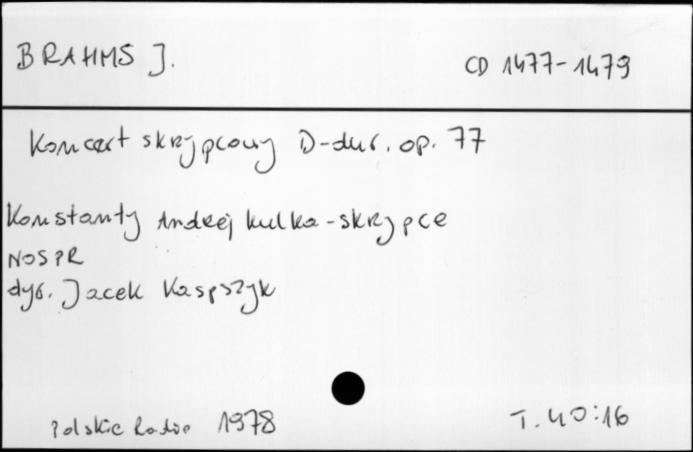 BRAHMS J.
CD 1477-1479
Koncert skrzypcowy D-dur. op. 77
Konstanty Andrzej Kulka - skrzypce
NOSPR
dyr. Jacek Kaspszyk
Polskie Radio 1978
T. 40:16